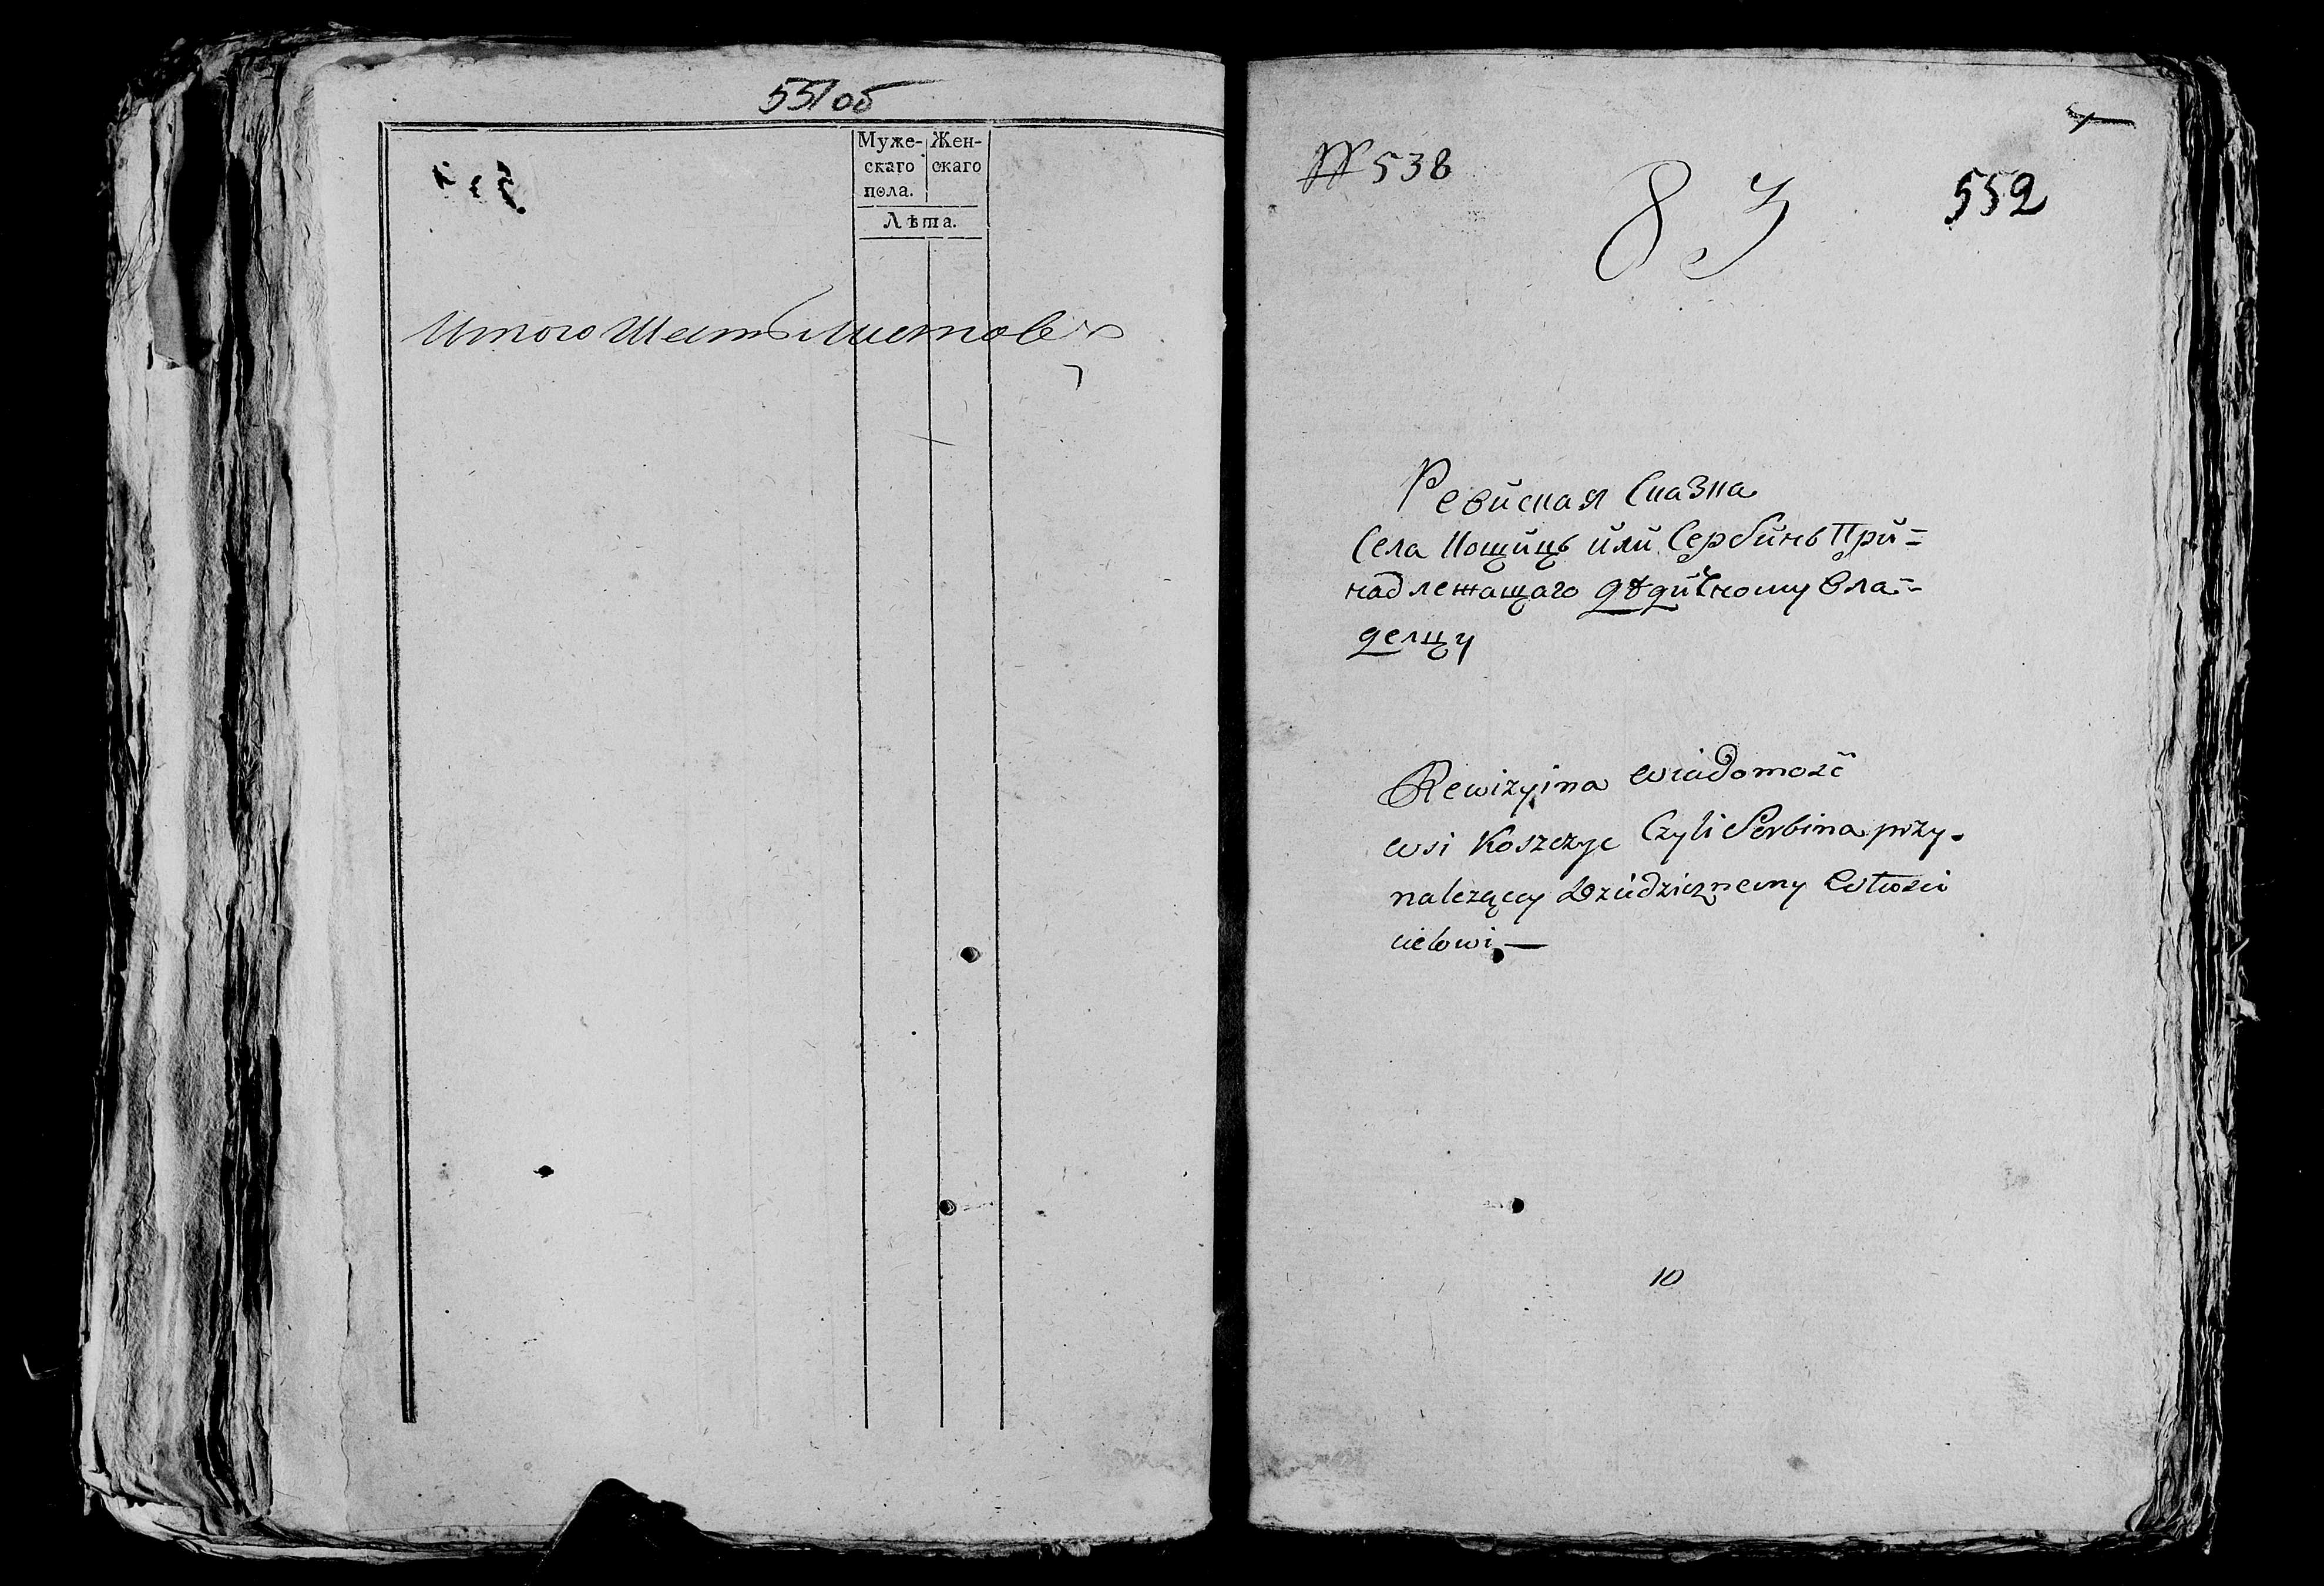 551 об
Муже- Жен-
скаго скаго
пола.
Лѣта.
Итого Шесть Листовъ
№ 538
83
552
Ревиская Сказка
Села Кощицъ или Сербинъ При=
надлежащаго дѣдичному Вла=
делцу
Rewizyina wiadomość
wsi Koszczyc Czyli Serbina przy-
należący Dziedzicznemu Właści
cielowi —
10